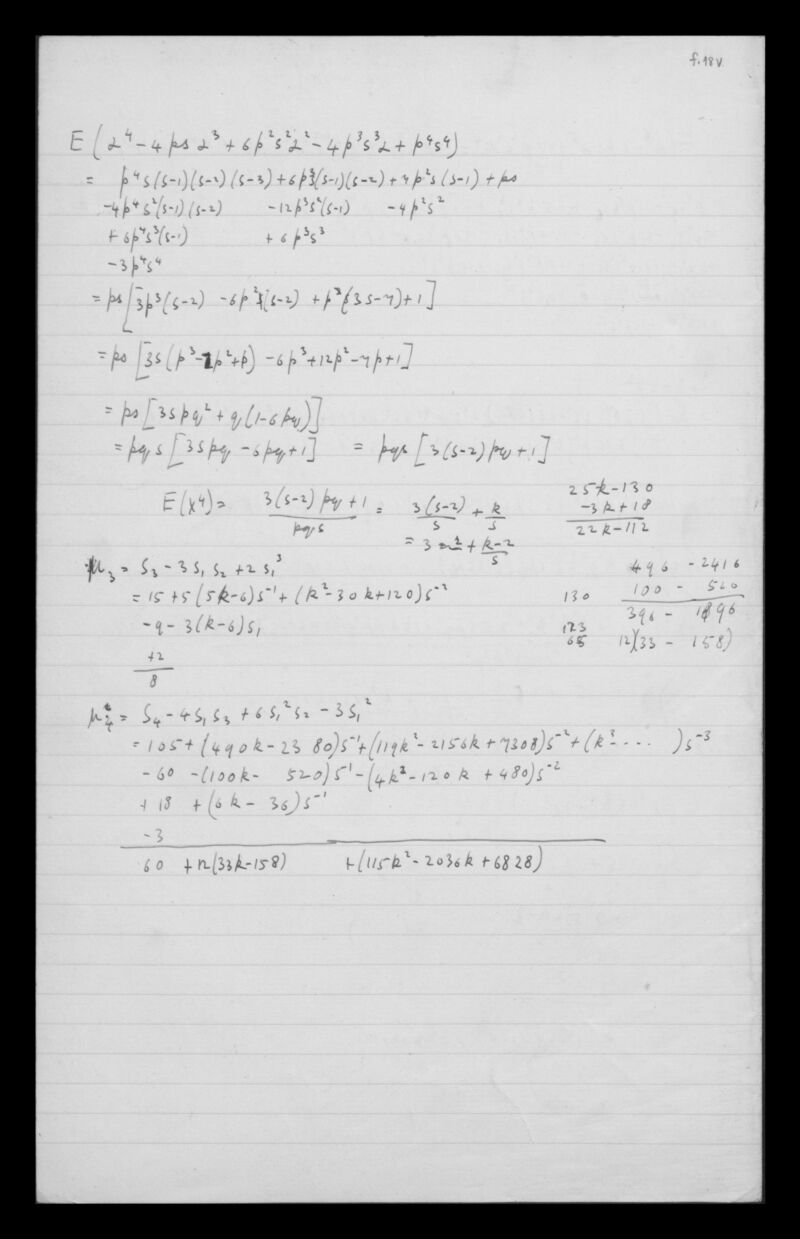 f.18v
E (α⁴ - 4 ps α³ + 6p²s²α² - 4p³s³α + p⁴s⁴)
= p⁴s(s-1)(s-2)(s-3) + 6p³s(s-1)(s-2) + 7p²s(s-1) + ps
-4p⁴s²(s-1)(s-2) -12p³s²(s-1) -4p²s²
+ 6p⁴s³(s-1) + 6p³s³
-3p⁴s⁴
= ps[3p³(s-2) -6p²(s-2) + p(3s-7)+1]
= ps [3s(p³-2p²+p) -6p³+12p²-7p+1]
= ps[3spq² + q(1-6pq)]
= pqs[3spq -6pq+1] = pqs[3(s-2)pq+1]
E(x⁴) = 3(s-2)pq+1 / pqs = 3(s-2)/s + k/s
= 3 + k-2/s
25k-130
-3k+18
22k-112
μ₃ = S₃ - 3S₁S₂ + 2S₁³
= 15+5(5k-6)s⁻¹+(k²-30k+120)s⁻²
-9-3(k-6)s,
+2
8
496 - 2416
130 100 - 520
396 - 1896
123
65 12)(33 - 158)
μ₄ = S₄ - 4S₁S₃ + 6S₁²S₂ - 3S₁²
= 105+(490k-2380)s⁻¹+(119k²-2156k+7308)s⁻²+(k³-.... )s⁻³
-60 -(100k- 520)s⁻¹-(4k²-120k+480)s⁻²
+ 18 +(6k- 36)s⁻¹
-3
60 +12(33k-158) +(115k²-2036k+6828)